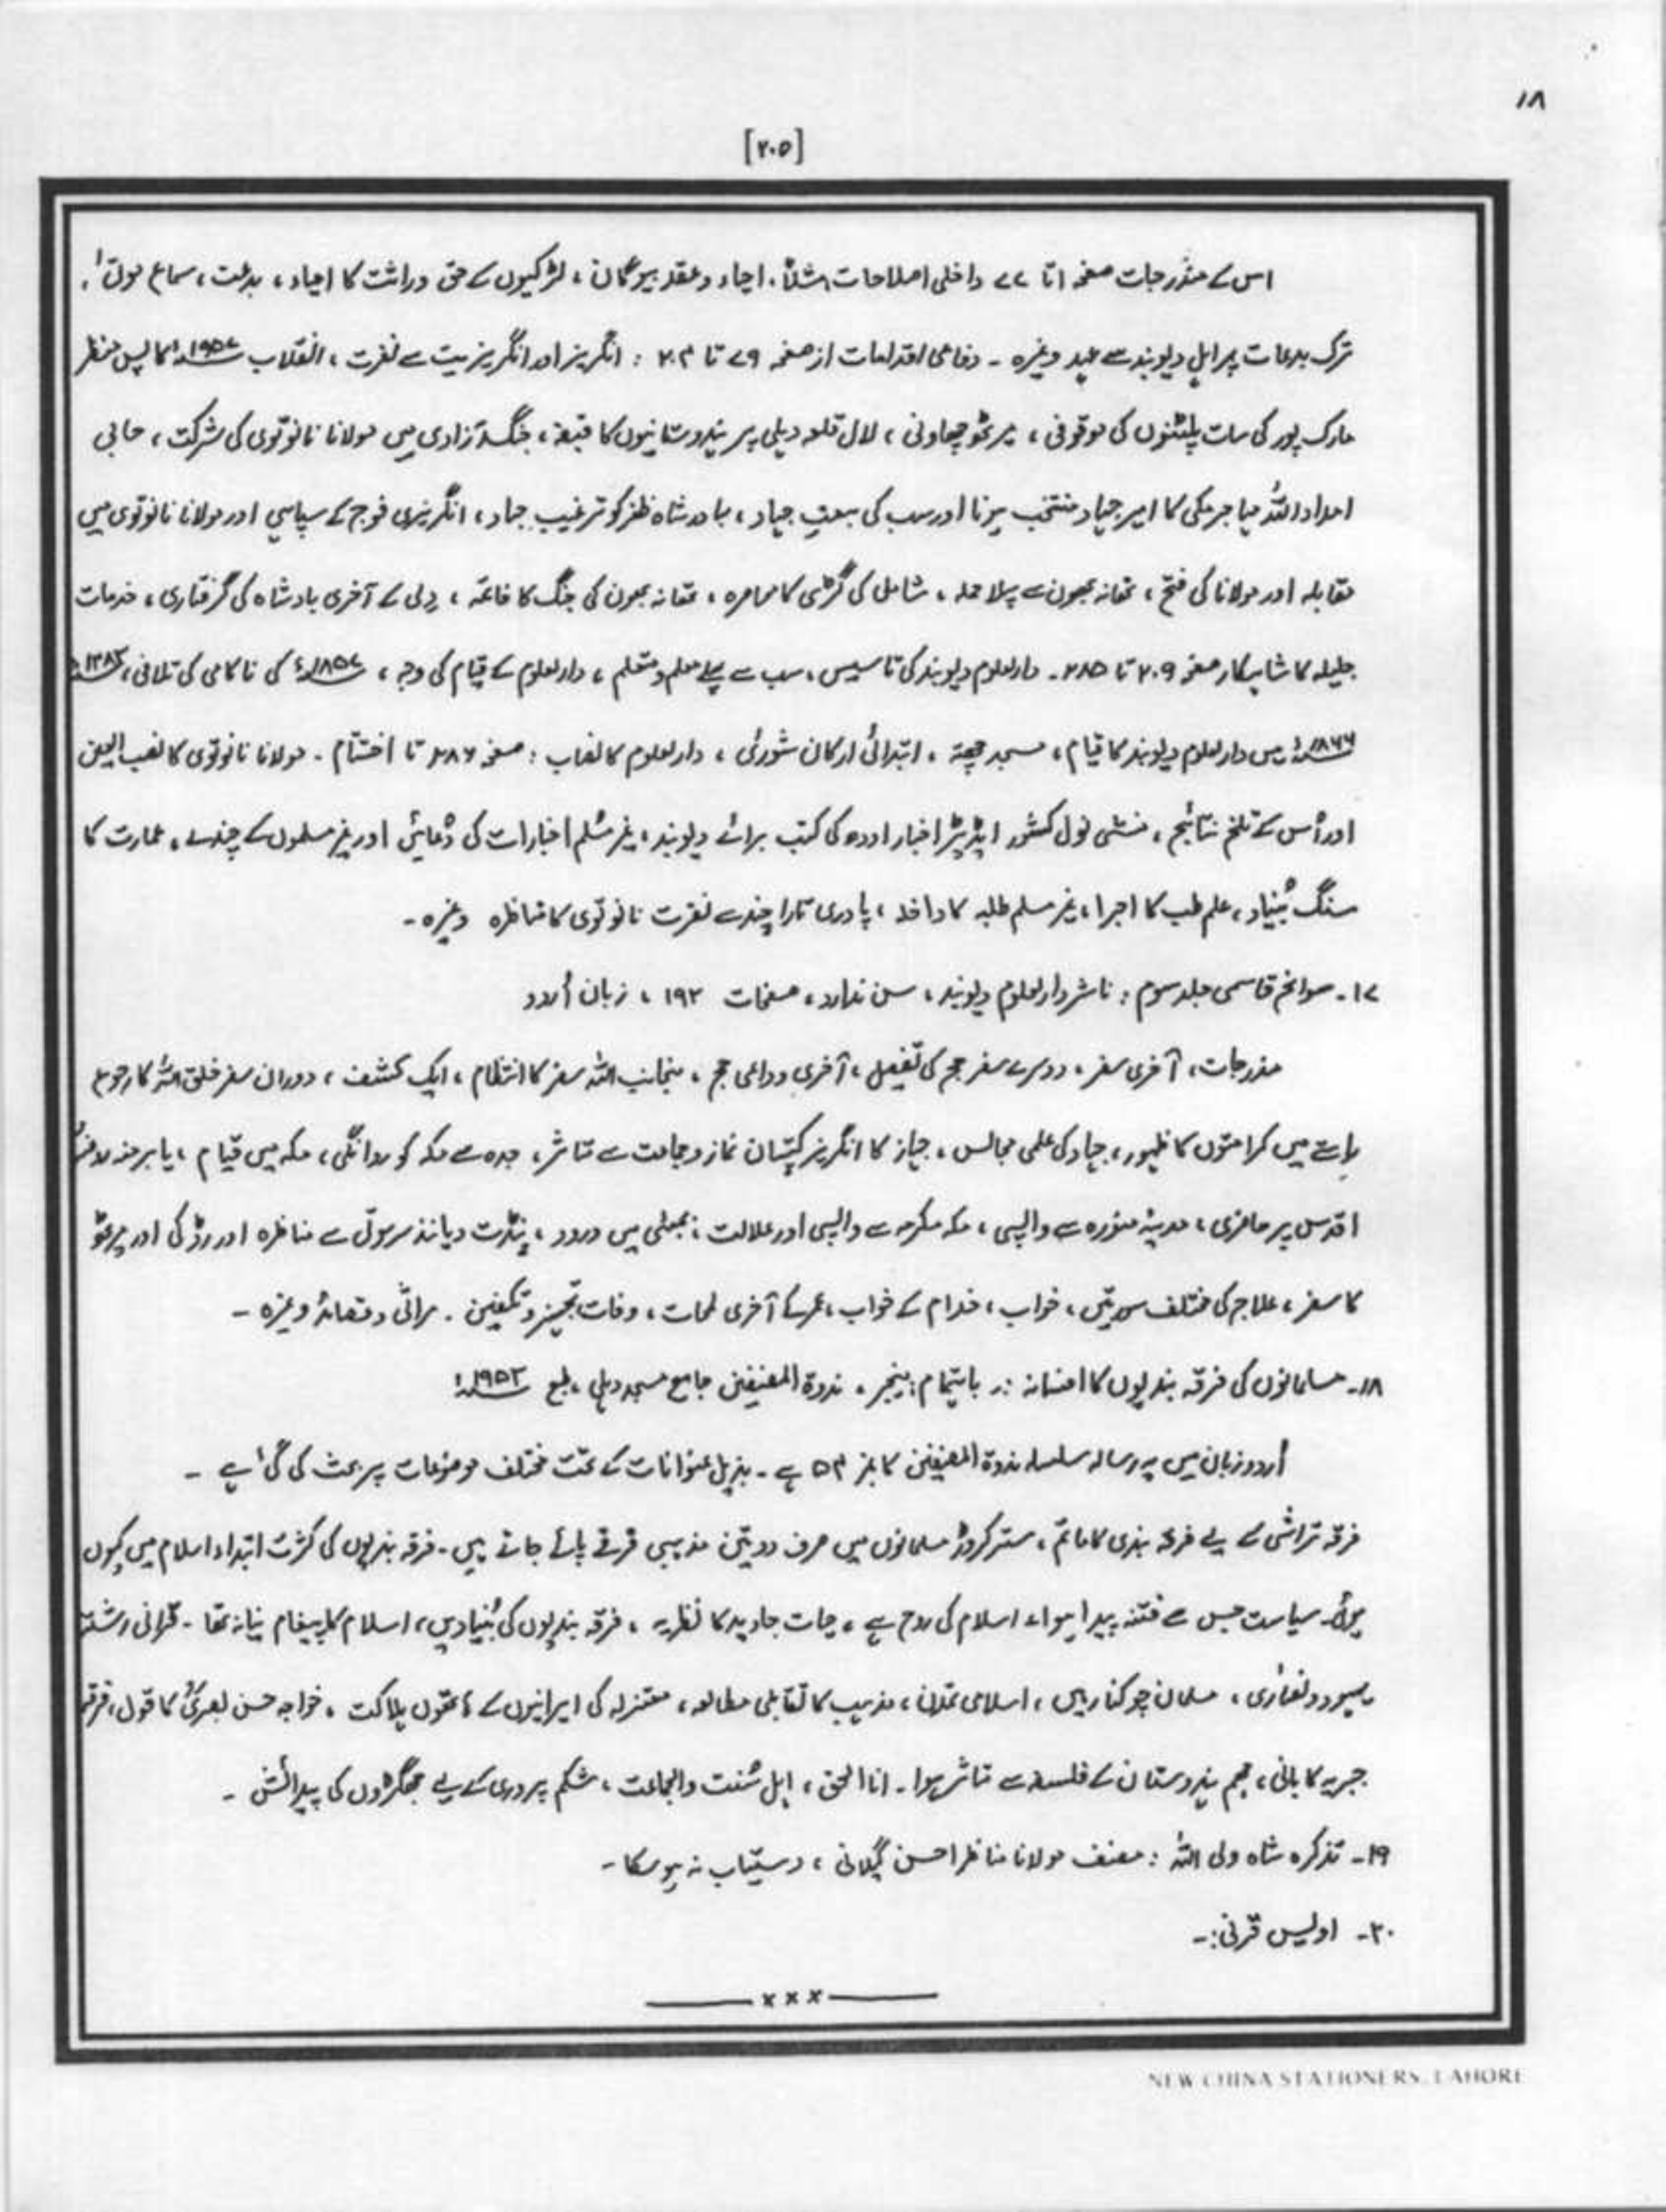 ۱۸
[۲۰۵]
اس کے مندرجات صفحہ ۱ تا ۷۷ داخلی اصلاحات مثلاً، احیاء و عقد بیوگان، لڑکیوں کے حق وراثت کا احیاء، بدعت، سماع موتٰی،
ترک بدعات پر اہلِ دیوبند سے عہد وغیرہ ۔ دفاعی اقدامات از صفحہ ۷۹ تا ۲۰۳ : انگریز اور انگریزیت سے نفرت، انقلاب ۱۹۵۷ء کا پس منظر
بارک پور کی سات پلٹنوں کی موقوفی، میرٹھ چھاونی، لال قلعہ دہلی پر ہندوستانیوں کا قبضہ، جنگ آزادی میں مولانا نانوتوی کی شرکت، حاجی
امداد اللہؒ مہاجر مکی کا امیر جہاد منتخب ہونا اور سب کی بیعتِ جہاد، بہادر شاہ ظفر کو ترغیب جہاد، انگریزی فوج کے سپاہی اور مولانا نانوتوی میں
مقابلہ اور مولانا کی فتح، تھانہ بھون سے پہلا حملہ، شاملی کی گڑھی کا محاصرہ، تھانہ بھون کی جنگ کا خاتمہ، دِلی کے آخری بادشاہ کی گرفتاری، خدمات
جلیلہ کا شاہکار صفحہ ۲۰۹ تا ۲۸۵ ۔ دارالعلوم دیوبند کی تاسیس، سب سے پہلے معلم و متعلم، دارالعلوم کے قیام کی وجہ، ۱۸۵۷ء کی ناکامی کی تلافی، ۱۲۸۳ھ
۱۸۶۶ء میں دارالعلوم دیوبند کا قیام، مسجد چھتہ، ابتدائی ارکان شوریٰ، دارالعلوم کا نصاب : صفحہ ۲۸۶ تا اختتام ۔ مولانا نانوتوی کا نصب العین
اور اُس کے تلخ نتائج، منشی نول کشور ایڈیٹر اخبار اودھ کی کتب برائے دیوبند، غیر مُسلم اخبارات کی دُعائیں اور غیر مسلموں کے چندے، عمارت کا
سنگ بُنیاد، علم طب کا اجرا، غیر مسلم طلبہ کا داخلہ، پادری تارا چند سے نانوتوی کا مناظرہ وغیرہ ۔
۱۷۔ سوانح قاسمی جلد سوم : ناشر دارالعلوم دیوبند، سن ندارد، صفحات ۱۹۲، زبان اُردو
مندرجات، آخری سفر، دوسرے سفر حج کی تفصیل، آخری وداعی حج، منجانب اللہ سفر کا انتظام، ایک کشف، دوران سفر خلق اللہ کا رجوع
راستے میں کرامتوں کا ظہور، جہاد کی علمی مجالس، جہاز کا انگریز کپتان نماز و جماعت سے متاثر، جدہ سے مکہ کو روانگی، مکہ میں قیام، پا برہنہ روضۂ
اقدس پر حاضری، مدینہ منورہ سے واپسی، مکہ مکرمہ سے واپسی اور علالت، بمبئی میں ورود، پنڈت دیانند سرسوتی سے مناظرہ اور رڑکی اور میرٹھ
کا سفر، علاج کی مختلف صورتیں، خواب، خدام کے خواب، عمر کے آخری لمحات، وفات، تجہیز و تکفین ۔ مراثی و قصائد وغیرہ ۔
۱۸۔ مسلمانوں کی فرقہ بندیوں کا افسانہ :۔ باہتمام : منیجر، ندوۃ المصنفین جامع مسجد دہلی، طبع ۱۹۵۲ء
اُردو زبان میں یہ رسالہ سلسلہ ندوۃ المصنفین کا نمبر ۵۴ ہے ۔ بذیل عنوانات کے تحت مختلف موضوعات پر بحث کی گئی ہے ۔
فرقہ تراشی کے لیے فرقہ بندی کا ماتم، ستر کروڑ مسلمانوں میں صرف دو تین مذہبی فرقے پائے جاتے ہیں ۔ فرقہ بندیوں کی کثرت ابتداء اسلام میں کیوں
ہوئی۔ سیاست جس سے فتنہ پیدا ہوا، اسلام کی روح ہے، حیات جاوید کا نظریہ، فرقہ بندیوں کی بُنیادیں، اسلام کا پیغام نیا نہ تھا ۔ قرآنی رشتہ
یہود و نصاریٰ، مسلمان چوکنا رہیں، اسلامی تمدن، مذہب کا تقابلی مطالعہ، معتزلہ کی ایرانیوں کے ہاتھوں ہلاکت، خواجہ حسن بصریؒ کا قول، فرقہ
جبریہ کا بانی، جہم ہندوستان کے فلسفہ سے متاثر ہوا ۔ انا الحق، اہل سُنت والجماعت، شکم پروری کے لیے جھگڑوں کی پیدائش ۔
۱۹۔ تذکرہ شاہ ولی اللہؒ : مصنف مولانا مناظر احسن گیلانی، دستیاب نہ ہو سکا ۔
۲۰۔ اویس قرنی :۔
××× 
NEW CHINA STATIONERS, LAHORE